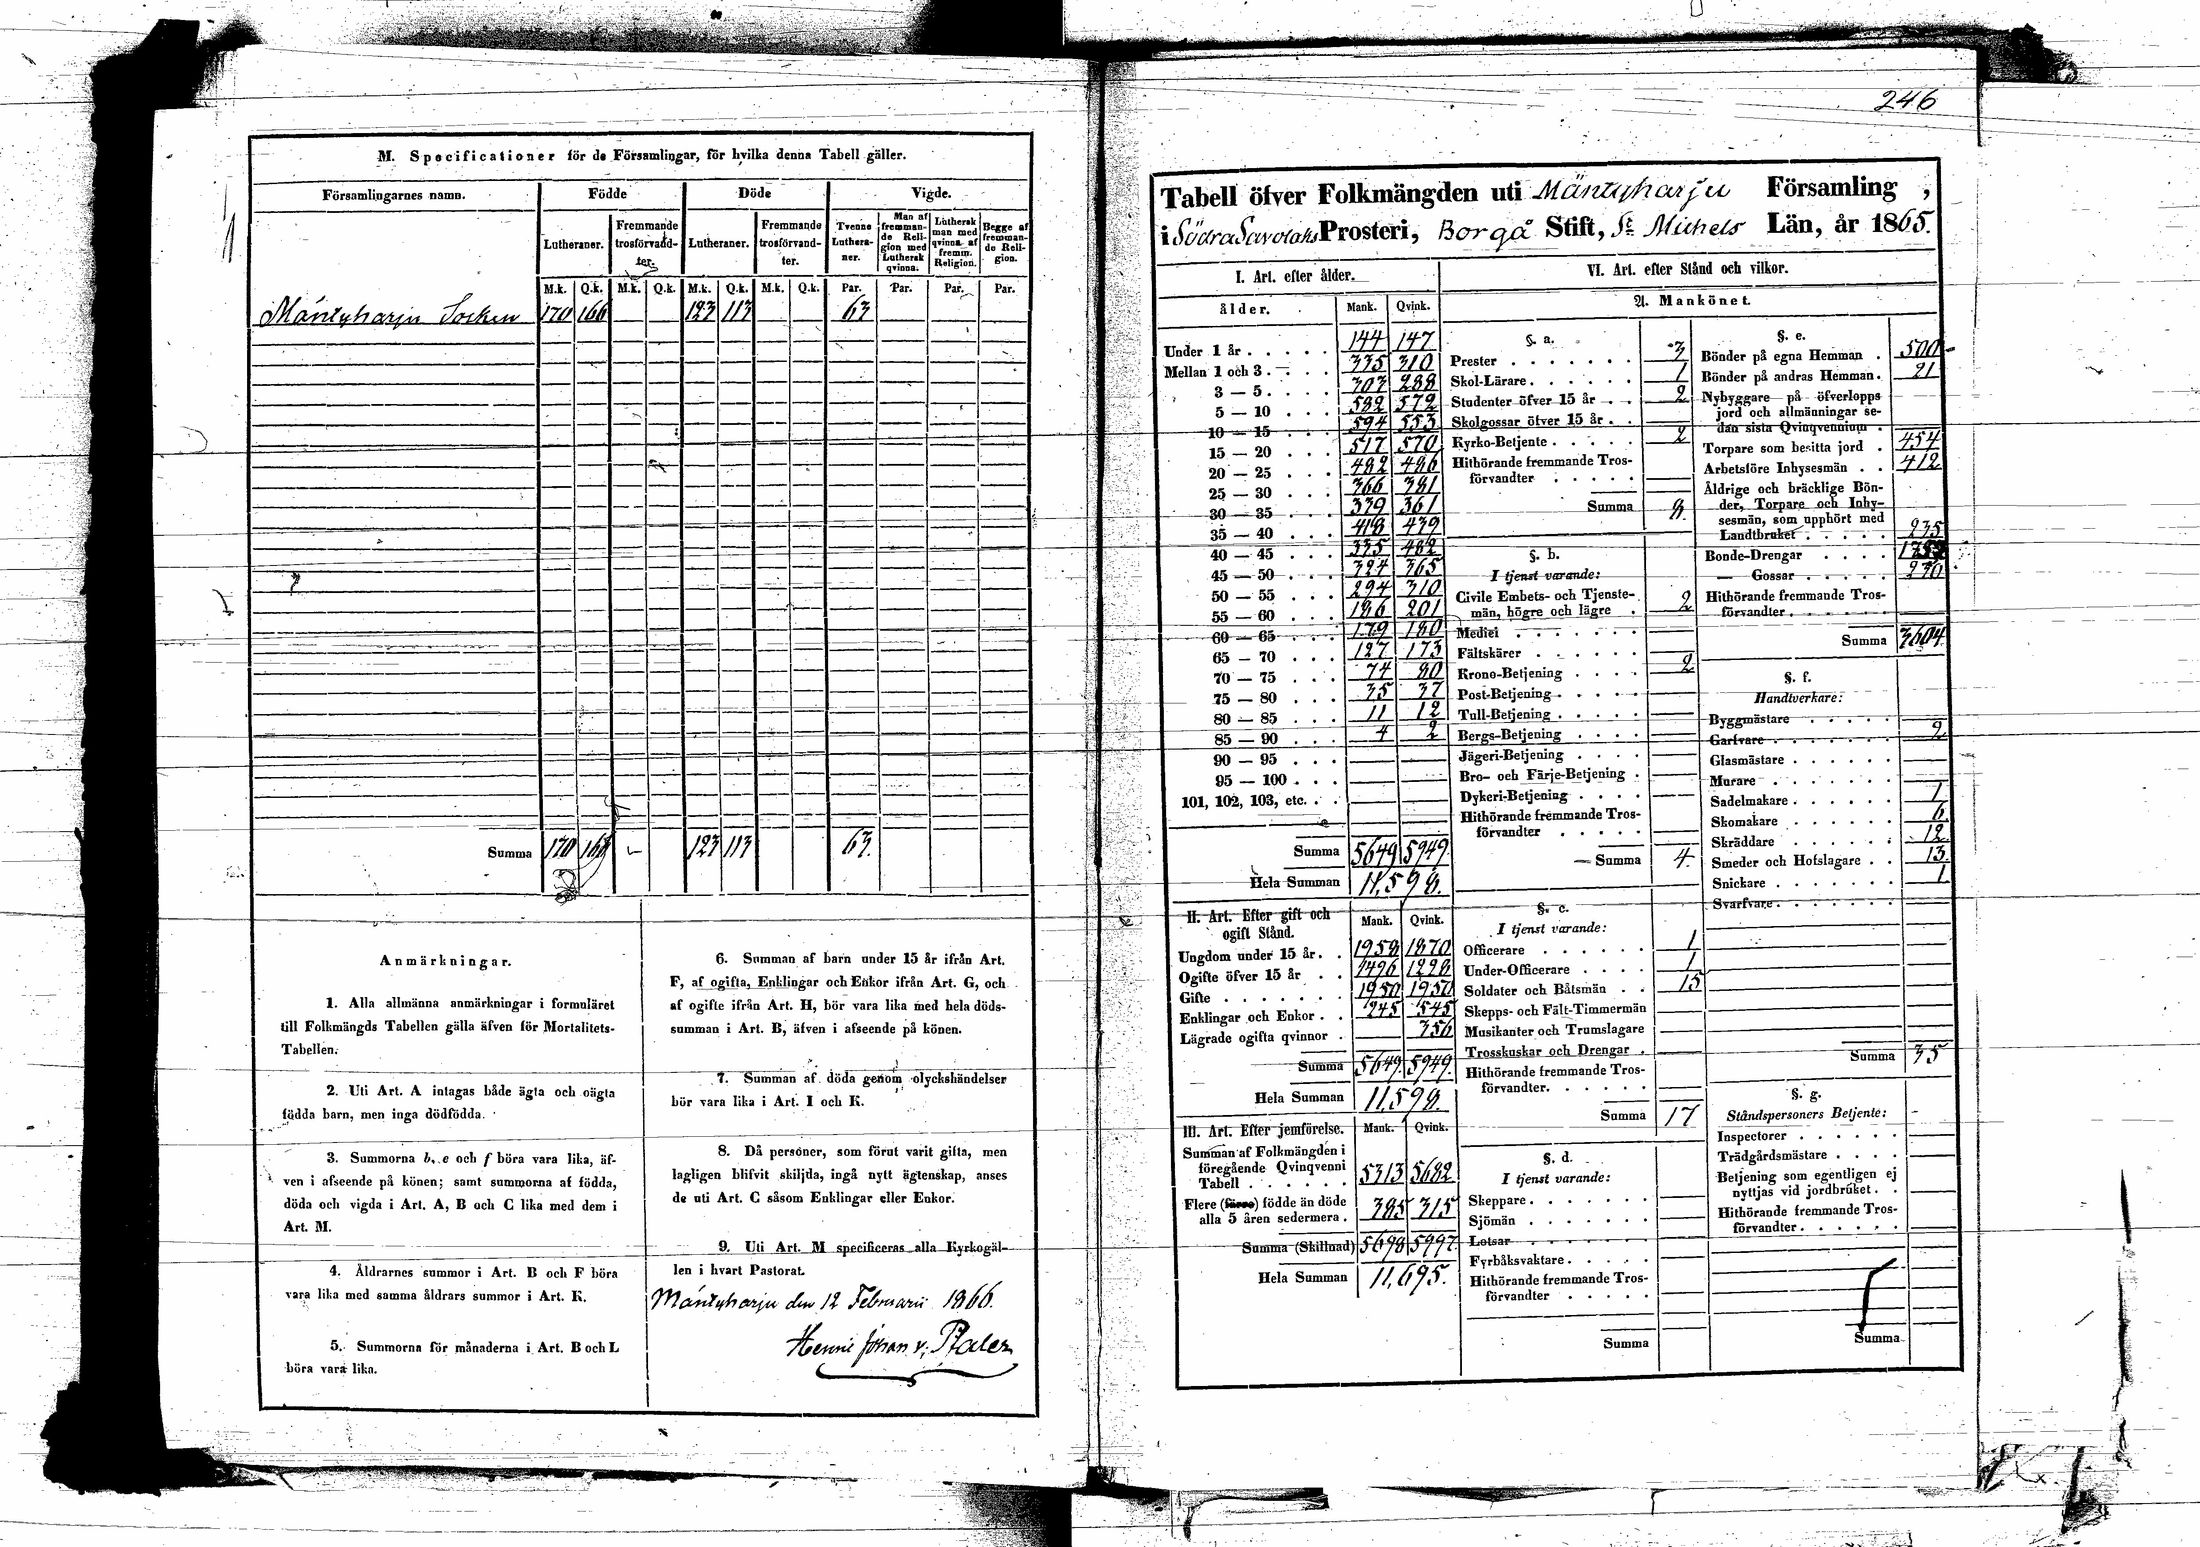 M. Specificationer för de Församlingar, för hvilka denna Tabell gäller.
Församlingarnes namn. Födde Döde Vigde.
Lutheraner. Fremmande trosförvandter. Lutheraner. Fremmande trosförvandter. Tvenne Lutheraner. Man af fremmande Religion med Luthersk qvinna. Luthersk man med qvinna af fremm. Religion. Begge af fremmande Religion.
M.k. Q.k. M.k. Q.k. M.k. Q.k. M.k. Q.k. Par. Par. Par. Par.
Mäntyharju Socken 170 166 123 113 63
Summa 170 166 123 113 63.
Anmärkningar.
1. Alla allmänna anmärkningar i formuläret
till Folkmängds Tabellen gälla äfven för Mortalitets-
Tabellen.
2. Uti Art. A intagas både ägta och oägta
födda barn, men inga dödfödda.
3. Summorna b, e och f böra vara lika, äf-
ven i afseende på könen; samt summorna af födda,
döda och vigda i Art. A, B och C lika med dem i
Art. M.
4. Åldrarnes summor i Art. B och F böra
vara lika med samma åldrars summor i Art. K.
5. Summorna för månaderna i Art. B och L
böra vara lika.
6. Summan af barn under 15 år ifrån Art.
F, af ogifta, Enklingar och Enkor ifrån Art. G, och
af ogifte ifrån Art. H, bör vara lika med hela döds-
summan i Art. B, äfven i afseende på könen.
7. Summan af döda genom olyckshändelser
bör vara lika i Art. I och K.
8. Då personer, som förut varit gifta, men
lagligen blifvit skiljda, ingå nytt ägtenskap, anses
de uti Art. C såsom Enklingar eller Enkor.
9. Uti Art. M specificeras alla Kyrkogäl-
len i hvart Pastorat.
Mäntyharju den 12 Februarii 1866.
Henric Johan v. Pfaler
246
Tabell öfver Folkmängden uti Mäntyharju Församling,
i Södra Savolaks Prosteri, Borgå Stift, St Michels Län, år 1865.
I. Art. efter ålder.
ålder. Mank. Qvink.
Under 1 år 144 147
Mellan 1 och 3 335 310
3 — 5 303 288
5 — 10 582 572
10 — 15 594 553
15 — 20 517 570
20 — 25 482 486
25 — 30 366 381
30 — 35 339 361
35 — 40 418 439
40 — 45 335 482
45 — 50 324 365
50 — 55 294 310
55 — 60 186 201
60 — 65 179 180
65 — 70 127 173
70 — 75 74 80
75 — 80 35 37
80 — 85 11 12
85 — 90 4 2
90 — 95
95 — 100
101, 102, 103, etc.
Summa 5649 5949.
Hela Summan 11,598.
II. Art. Efter gift och
ogift Stånd. Mank. Qvink.
Ungdom under 15 år 1958 1870
Ogifte öfver 15 år 1496 1228
Gifte 1950 1950
Enklingar och Enkor 245 545
Lägrade ogifta qvinnor 356
Summa 5649 5949.
Hela Summan 11,598.
III. Art. Efter jemförelse. Mank. Qvink.
Summan af Folkmängden i
föregående Qvinqvenni
Tabell 5313 5682
Flere (färre) födde än döde
alla 5 åren sedermera 385 315
Summa (Skillnad) 5698 5997.
Hela Summan 11,695.
VI. Art. efter Stånd och vilkor.
A. Mankönet.
§. a.
Prester 3
Skol-Lärare 1
Studenter öfver 15 år 2
Skolgossar öfver 15 år
Kyrko-Betjente 2
Hithörande fremmande Tros-
förvandter
Summa 8.
§. b.
I tjenst varande:
Civile Embets- och Tjenste-
män, högre och lägre 2
Medici
Fältskärer
Krono-Betjening 2
Post-Betjening
Tull-Betjening
Bergs-Betjening
Jägeri-Betjening
Bro- och Färje-Betjening
Dykeri-Betjening
Hithörande fremmande Tros-
förvandter
Summa 4.
§. c.
I tjenst varande:
Officerare 1
Under-Officerare 1
Soldater och Båtsmän 15
Skepps- och Fält-Timmermän
Musikanter och Trumslagare
Trosskuskar och Drengar
Hithörande fremmande Tros-
förvandter.
Summa 17
§. d.
I tjenst varande:
Skeppare
Sjömän
Lotsar
Fyrbåksvaktare
Hithörande fremmande Tros-
förvandter
Summa
§. e.
Bönder på egna Hemman 500
Bönder på andras Hemman 21
Nybyggare på öfverlopps
jord och allmänningar se-
dan sista Qvinqvennium
Torpare som besitta jord 454
Arbetsföre Inhysesmän 412
Åldrige och bräcklige Bön-
der, Torpare och Inhy-
sesmän, som upphört med
Landtbruket 235
Bonde-Drengar
— Gossar 230
Hithörande fremmande Tros-
förvandter
Summa 3604.
§. f.
Handtverkare:
Byggmästare
Garfvare 2
Glasmästare
Murare
Sadelmakare 1
Skomakare 6
Skräddare 12
Smeder och Hofslagare 13
Snickare 1
Svarfvare
Summa 35
§. g.
Ståndspersoners Betjente:
Inspectorer
Trädgårdsmästare
Betjening som egentligen ej
nyttjas vid jordbruket
Hithörande fremmande Tros-
förvandter
Summa